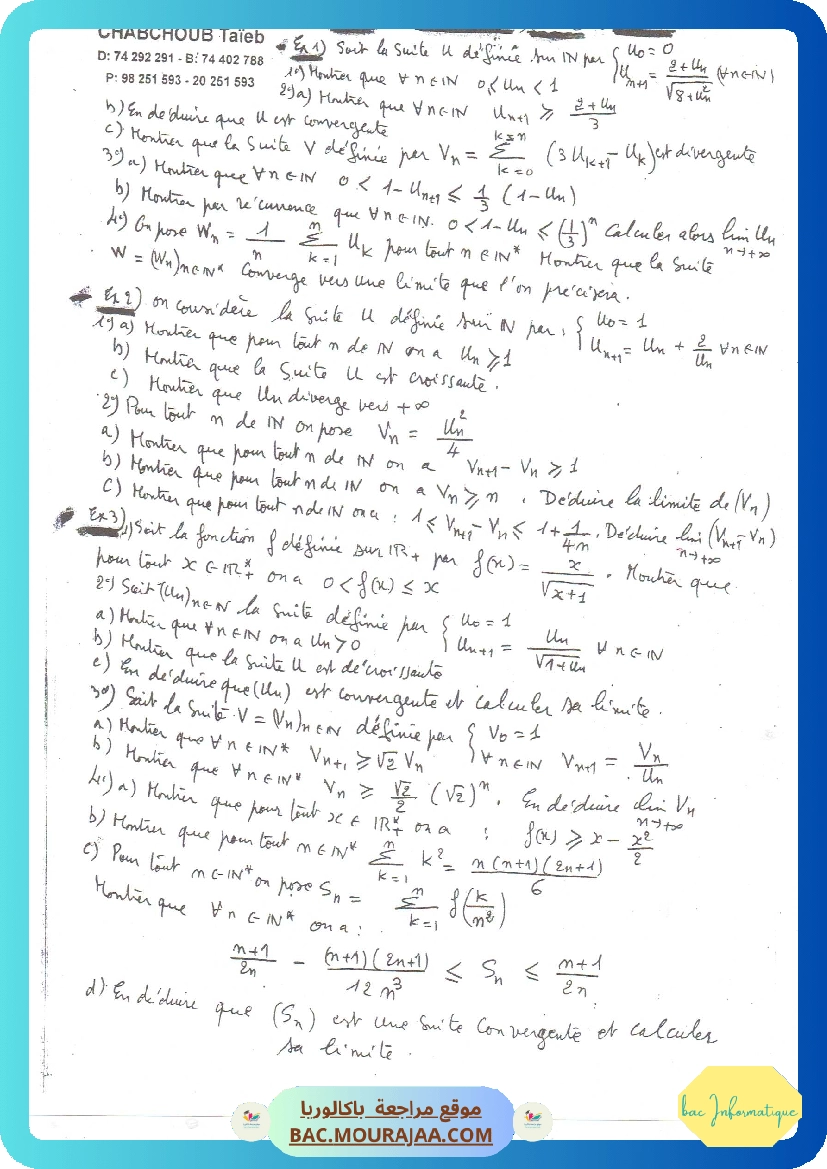 CHABCHOUB Taïeb
D: 74 292 291 - B: 74 402 788
P: 98 251 593 - 20 251 593
Ex 1) Soit la suite U définie sur IN par { U₀ = 0
Uₙ₊₁ = (2+Uₙ)/√(8+Uₙ²) (∀n∈IN)
1°) Montrer que ∀n∈IN 0 ≤ Uₙ < 1
2°) a) Montrer que ∀n∈IN Uₙ₊₁ ≥ (2+Uₙ)/3
b) En déduire que U est convergente
c) Montrer que la suite V définie par Vₙ = Σ_{k=0}^{k=n} (3Uₖ₊₁ - Uₖ) est divergente
3°) a) Montrer que ∀n∈IN 0 < 1-Uₙ₊₁ ≤ 1/3 (1-Uₙ)
b) Montrer par récurrence que ∀n∈IN. 0 < 1-Uₙ ≤ (1/3)ⁿ Calculer alors lim Uₙ n→+∞
4°) On pose Wₙ = 1/n Σ_{k=1}^{n} Uₖ pour tout n∈IN* Montrer que la suite
W = (Wₙ)n∈IN* Converge vers une limite que l'on précisera.
Ex 2) on considère la suite U définie sur IN par : { U₀ = 1
Uₙ₊₁ = Uₙ + 2/Uₙ ∀n∈IN
1°) a) Montrer que pour tout n de IN on a Uₙ ≥ 1
b) Montrer que la suite U est croissante.
c) Montrer que Uₙ diverge vers +∞
2°) Pour tout n de IN on pose Vₙ = Uₙ²/4
a) Montrer que pour tout n de IN on a Vₙ₊₁ - Vₙ ≥ 1
b) Montrer que pour tout n de IN on a Vₙ ≥ n. Déduire la limite de (Vₙ)
c) Montrer que pour tout n de IN on a : 1 ≤ Vₙ₊₁ - Vₙ ≤ 1 + 1/4n. Déduire lim (Vₙ₊₁ - Vₙ) n→+∞
Ex 3) 1) Soit la fonction f définie sur IR₊ par f(x) = x/√(x+1). Montrer que
pour tout x ∈ IR₊* on a 0 < f(x) ≤ x
2°) Soit (Uₙ)n∈IN la suite définie par { U₀ = 1
Uₙ₊₁ = Uₙ/√(1+Uₙ) ∀n∈IN
a) Montrer que ∀n∈IN on a Uₙ > 0
b) Montrer que la suite U est décroissante
c) En déduire que (Uₙ) est convergente et calculer sa limite.
3°) Soit la suite V = (Vₙ)n∈IN définie par { V₀ = 1
∀n∈IN Vₙ₊₁ = Vₙ/Uₙ
a) Montrer que ∀n∈IN* Vₙ₊₁ ≥ √2 Vₙ
b) Montrer que ∀n∈IN* Vₙ ≥ √2/2 (√2)ⁿ. En déduire lim Vₙ n→+∞
4°) a) Montrer que pour tout x ∈ IR₊* on a : f(x) ≥ x - x²/2
b) Montrer que pour tout n∈IN* Σ_{k=1}^{n} k² = n(n+1)(2n+1)/6
c) Pour tout n∈IN* on pose Sₙ = Σ_{k=1}^{n} f(k/n²)
Montrer que ∀n∈IN* on a :
(n+1)/2n - (n+1)(2n+1)/12n³ ≤ Sₙ ≤ (n+1)/2n
d) En déduire que (Sₙ) est une suite Convergente et calculer
sa limite.
bac Informatique
موقع مراجعة باكالوريا
BAC.MOURAJAA.COM